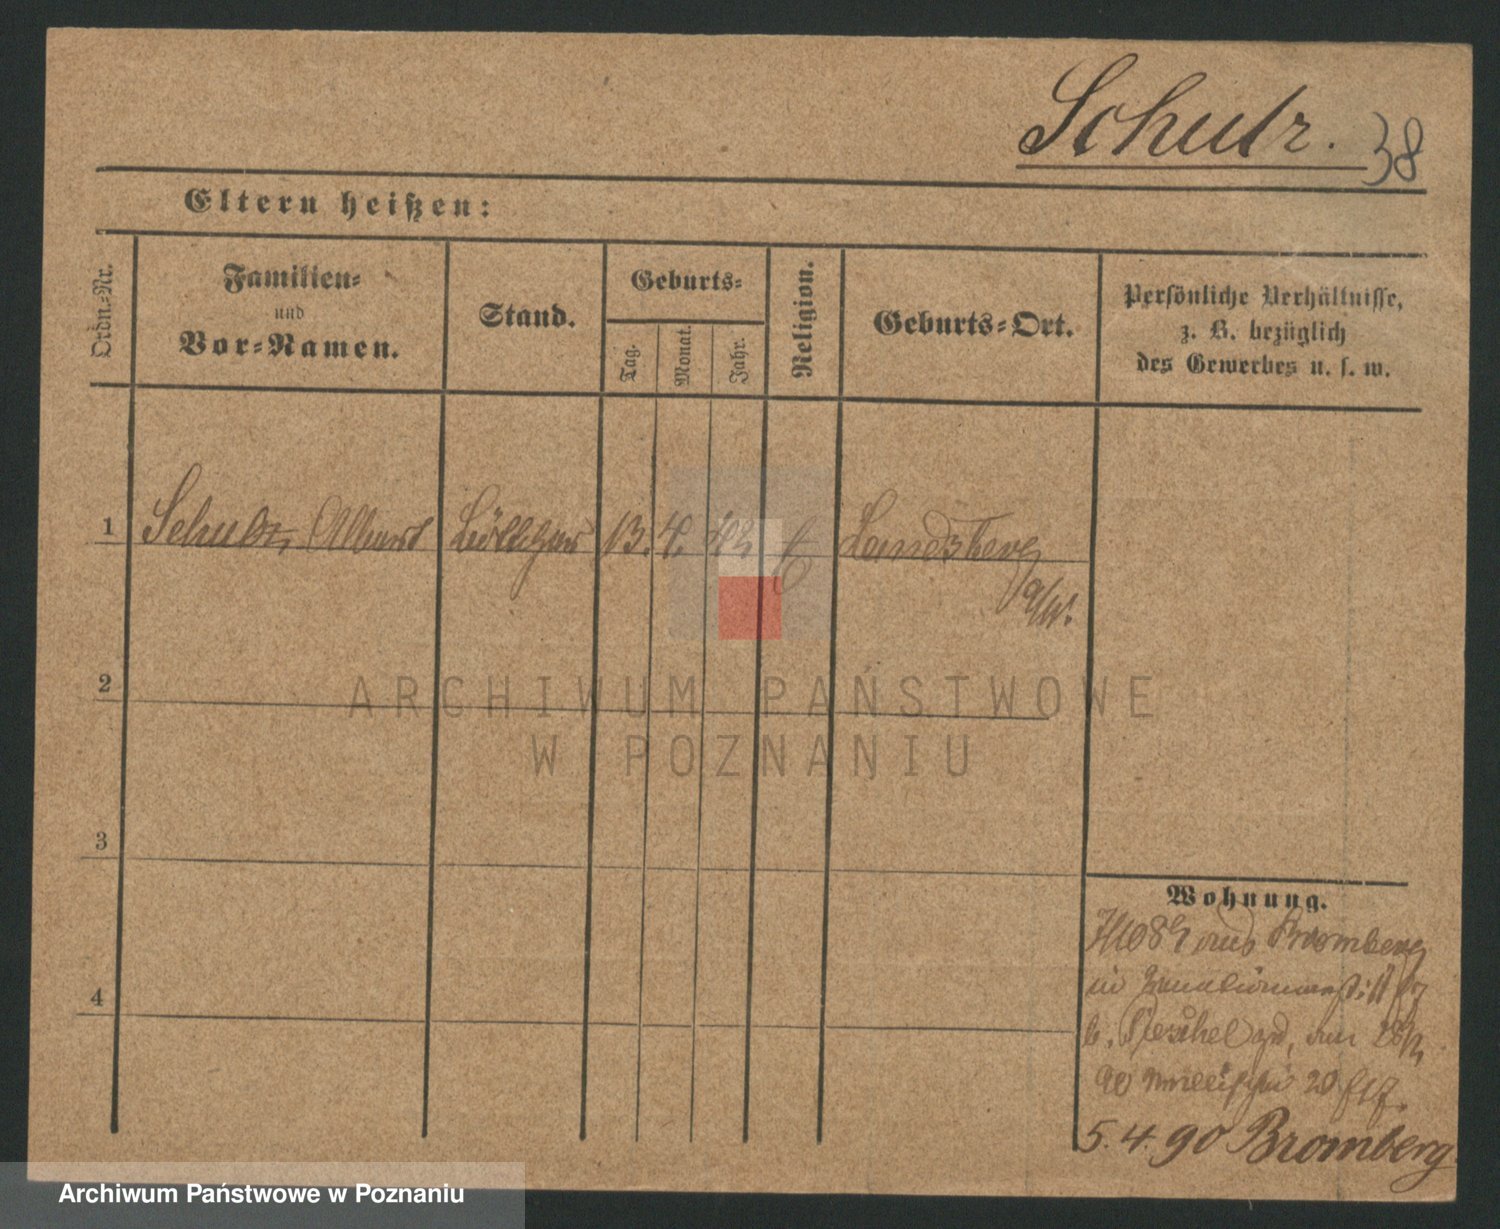 Schulz. 38
Eltern heißen:
Ordn.-Nr.
Familien-
und
Vor-Namen.
Stand.
Geburts-
Tag.
Monat.
Jahr.
Religion.
Geburts-Ort.
Persönliche Verhältnisse,
z. B. bezüglich
des Gewerbes u. s. w.
1 Schulz, Albert Böttcher 13. 4. 43 Landsberg
a/W.
2
3
4
Wohnung.
aus Bromberg
in
b. Peschel am
90 20
5. 4. 90 Bromberg
ARCHIWUM PAŃSTWOWE
W POZNANIU
Archiwum Państwowe w Poznaniu